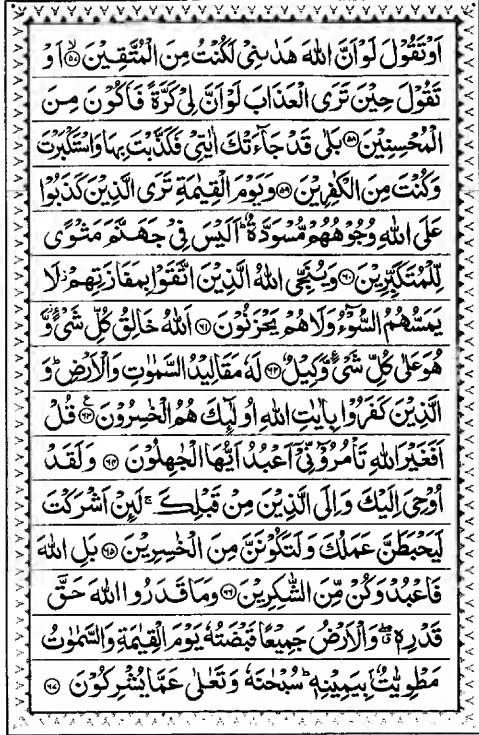 اَوْ تَقُوْلَ لَوْ اَنَّ اللّٰهَ هَدٰىنِیْ لَكُنْتُ مِنَ الْمُتَّقِیْنَ ۙ﴿۵۷﴾ اَوْ
تَقُوْلَ حِیْنَ تَرَی الْعَذَابَ لَوْ اَنَّ لِیْ كَرَّةً فَاَكُوْنَ مِنَ
الْمُحْسِنِیْنَ ﴿۵۸﴾ بَلٰی قَدْ جَآءَتْكَ اٰیٰتِیْ فَكَذَّبْتَ بِهَا وَاسْتَكْبَرْتَ
وَكُنْتَ مِنَ الْكٰفِرِیْنَ ﴿۵۹﴾ وَیَوْمَ الْقِیٰمَةِ تَرَی الَّذِیْنَ كَذَبُوْا
عَلَی اللّٰهِ وُجُوْهُهُمْ مُّسْوَدَّةٌ ؕ اَلَیْسَ فِیْ جَهَنَّمَ مَثْوًی
لِّلْمُتَكَبِّرِیْنَ ﴿۶۰﴾ وَیُنَجِّی اللّٰهُ الَّذِیْنَ اتَّقَوْا بِمَفَازَتِهِمْ ؗ لَا
یَمَسُّهُمُ السُّوْٓءُ وَلَا هُمْ یَحْزَنُوْنَ ﴿۶۱﴾ اَللّٰهُ خَالِقُ كُلِّ شَیْءٍ ؗ وَّ
هُوَ عَلٰی كُلِّ شَیْءٍ وَّكِیْلٌ ﴿۶۲﴾ لَهٗ مَقَالِیْدُ السَّمٰوٰتِ وَالْاَرْضِ ؕ وَ
الَّذِیْنَ كَفَرُوْا بِاٰیٰتِ اللّٰهِ اُولٰٓىِٕكَ هُمُ الْخٰسِرُوْنَ ﴿۶۳﴾ ع قُلْ
اَفَغَیْرَ اللّٰهِ تَاْمُرُوْٓنِّیْۤ اَعْبُدُ اَیُّهَا الْجٰهِلُوْنَ ﴿۶۴﴾ وَلَقَدْ
اُوْحِیَ اِلَیْكَ وَاِلَی الَّذِیْنَ مِنْ قَبْلِكَ ۚ لَىِٕنْ اَشْرَكْتَ
لَیَحْبَطَنَّ عَمَلُكَ وَلَتَكُوْنَنَّ مِنَ الْخٰسِرِیْنَ ﴿۶۵﴾ بَلِ اللّٰهَ
فَاعْبُدْ وَكُنْ مِّنَ الشّٰكِرِیْنَ ﴿۶۶﴾ وَمَا قَدَرُوا اللّٰهَ حَقَّ
قَدْرِهٖ ۖۗ وَالْاَرْضُ جَمِیْعًا قَبْضَتُهٗ یَوْمَ الْقِیٰمَةِ وَالسَّمٰوٰتُ
مَطْوِیّٰتٌۢ بِیَمِیْنِهٖ ؕ سُبْحٰنَهٗ وَتَعٰلٰی عَمَّا یُشْرِكُوْنَ ﴿۶۷﴾